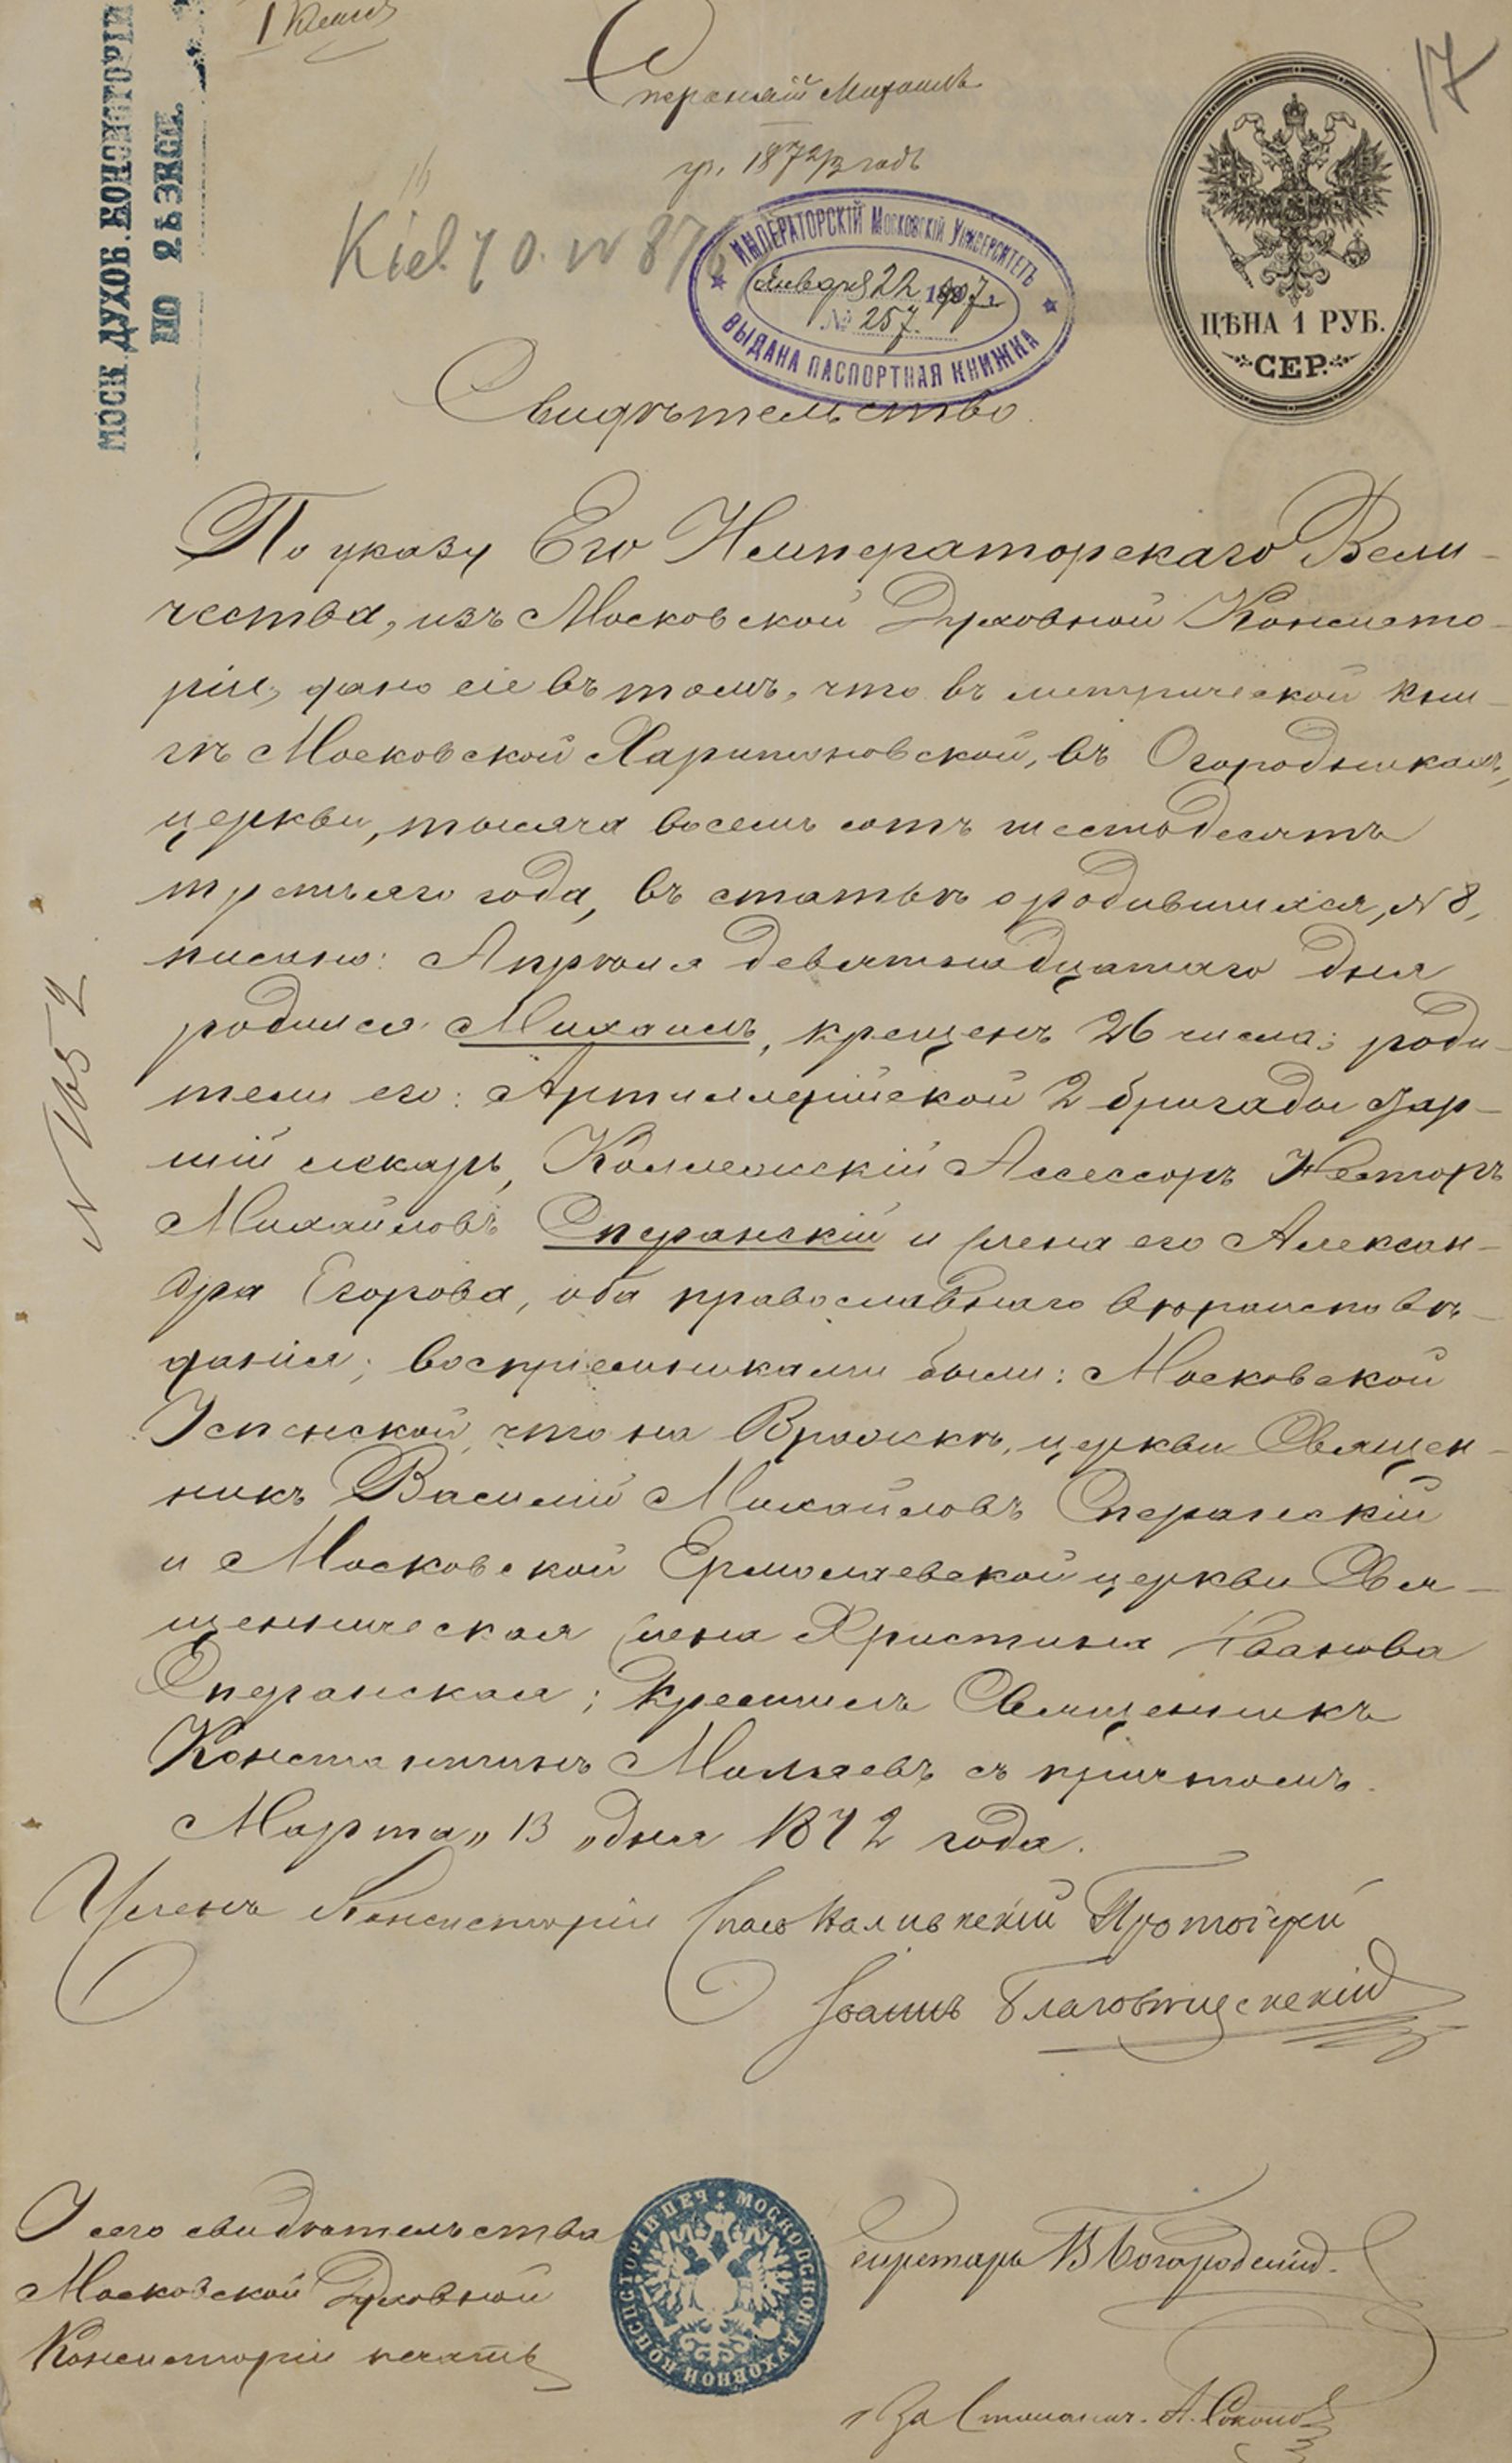 1 Класс
17
Сперанскій Михаилъ
гр. 1872/3 годъ
МОСК. ДУХОВ. КОНСИСТОРІИ
ПО 2й ЭКСП.
ИМПЕРАТОРСКІЙ Московскій Университетъ
Января 22 1907 г.
№ 257.
ВЫДАНА ПАСПОРТНАЯ КНИЖКА
ЦѢНА 1 РУБ.
СЕР.
Свидѣтельство.
По указу Его Императорскаго Вели-
чества, изъ Московской Духовной Консисто-
ріи, дано сіе въ томъ, что въ метрической кни-
гѣ Московской Харитоновской, въ Огородникахъ,
церкви, тысяча восемь сотъ шестьдесятъ
третьяго года, въ статьѣ о родившихся, № 8,
писано: Апрѣля девятнадцатаго дня
родился Михаилъ, крещенъ 26 числа; роди-
тели его: Артиллерійской 2 бригады Стар-
шій лекарь, Коллежскій Ассессоръ Несторъ
Михайловъ Сперанскій и жена его Алексан-
дра Егорова, оба православнаго вѣроисповѣ-
данія; воспріемниками были: Московской
Успенской, что на Вражкѣ, церкви Священ-
никъ Василій Михайловъ Сперанскій
и Московской Ермолаевской церкви Свя-
щенническая жена Христина Иванова
Сперанская; крестилъ Священникъ
Константинъ с причтомъ.
Марта „ 13 „ дня 1872 года.
№ 1652
Членъ Консисторіи Спасо Наливкскій Протоіерей
Іоаннъ Благовѣщенскій
У сего свидѣтельства
Московской Духовной
Консисторіи печать
МОСКОВСКОЙ ДУХОВНОЙ КОНСИСТОРІИ ПЕЧ
Секретарь В Богородскій.
За Столонач. А. Соколов